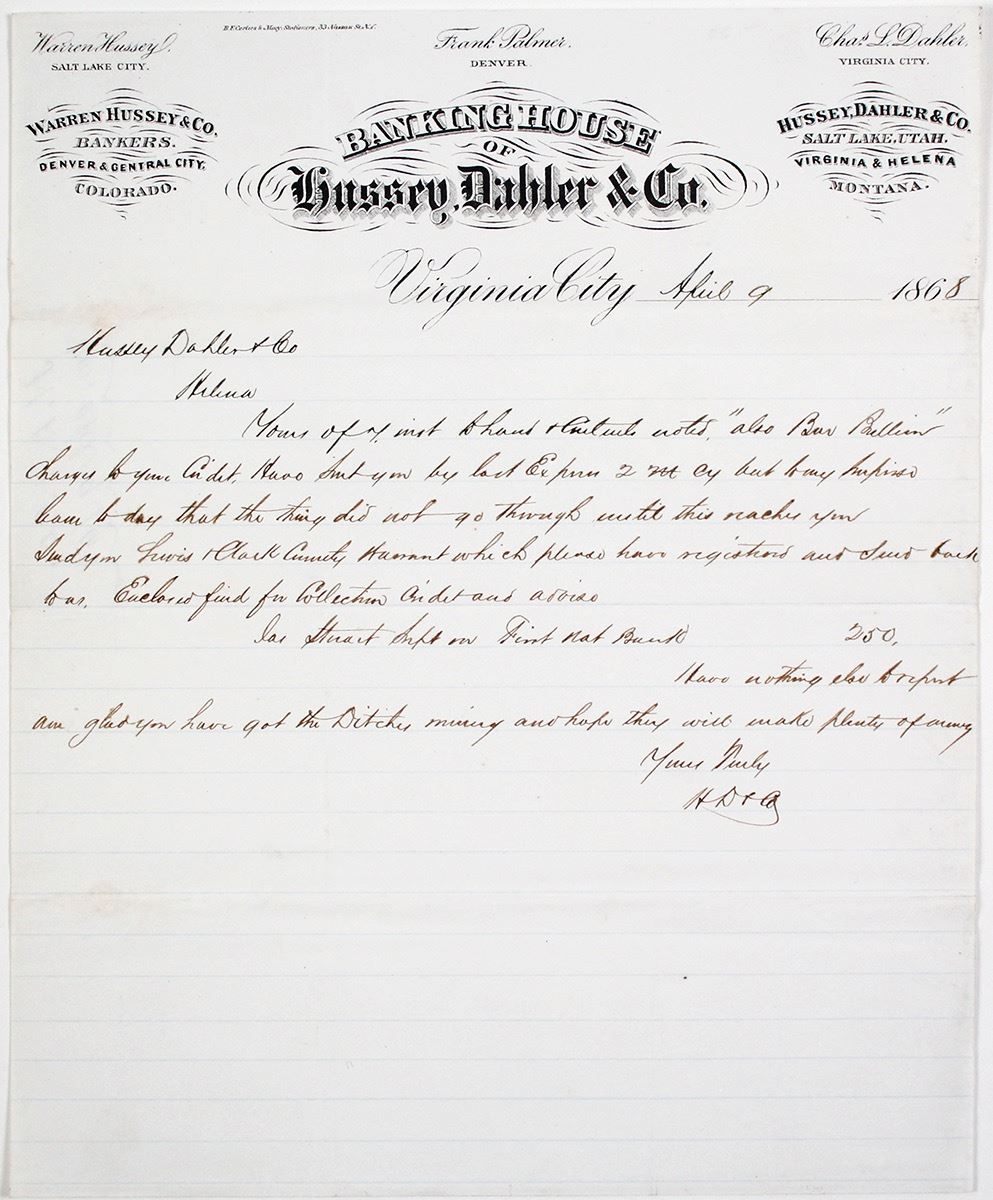 B.F. Corlies & Macy, Stationers, 33 Nassau St. N.Y.
Warren Hussey.
SALT LAKE CITY.
Frank Palmer.
DENVER.
Chas. L. Dahler.
VIRGINIA CITY.
WARREN HUSSEY & CO.
BANKERS.
DENVER & CENTRAL CITY,
COLORADO.
BANKING HOUSE
OF
Hussey, Dahler & Co.
HUSSEY, DAHLER & CO.
SALT LAKE, UTAH.
VIRGINIA & HELENA
MONTANA.
Virginia City April 9 1868
Hussey Dahler & Co
Helena
Yours of 7 inst to hand & Contents noted, "also Bar Bullion"
Charges to your Credit. Have Sent you by last Express 2 m cy but to my Surprise
learn to day that the thing did not go through until this reaches you
Send you Lewis & Clark County Warrant which please have registered and Send back
to us. Enclosed find for Collection Credit and advise
Jas Stuart Supt on First Nat Bank 250,
Have nothing else to report
am glad you have got the Ditches mining and hope they will make plenty of money
Yours Truly
H D & Co